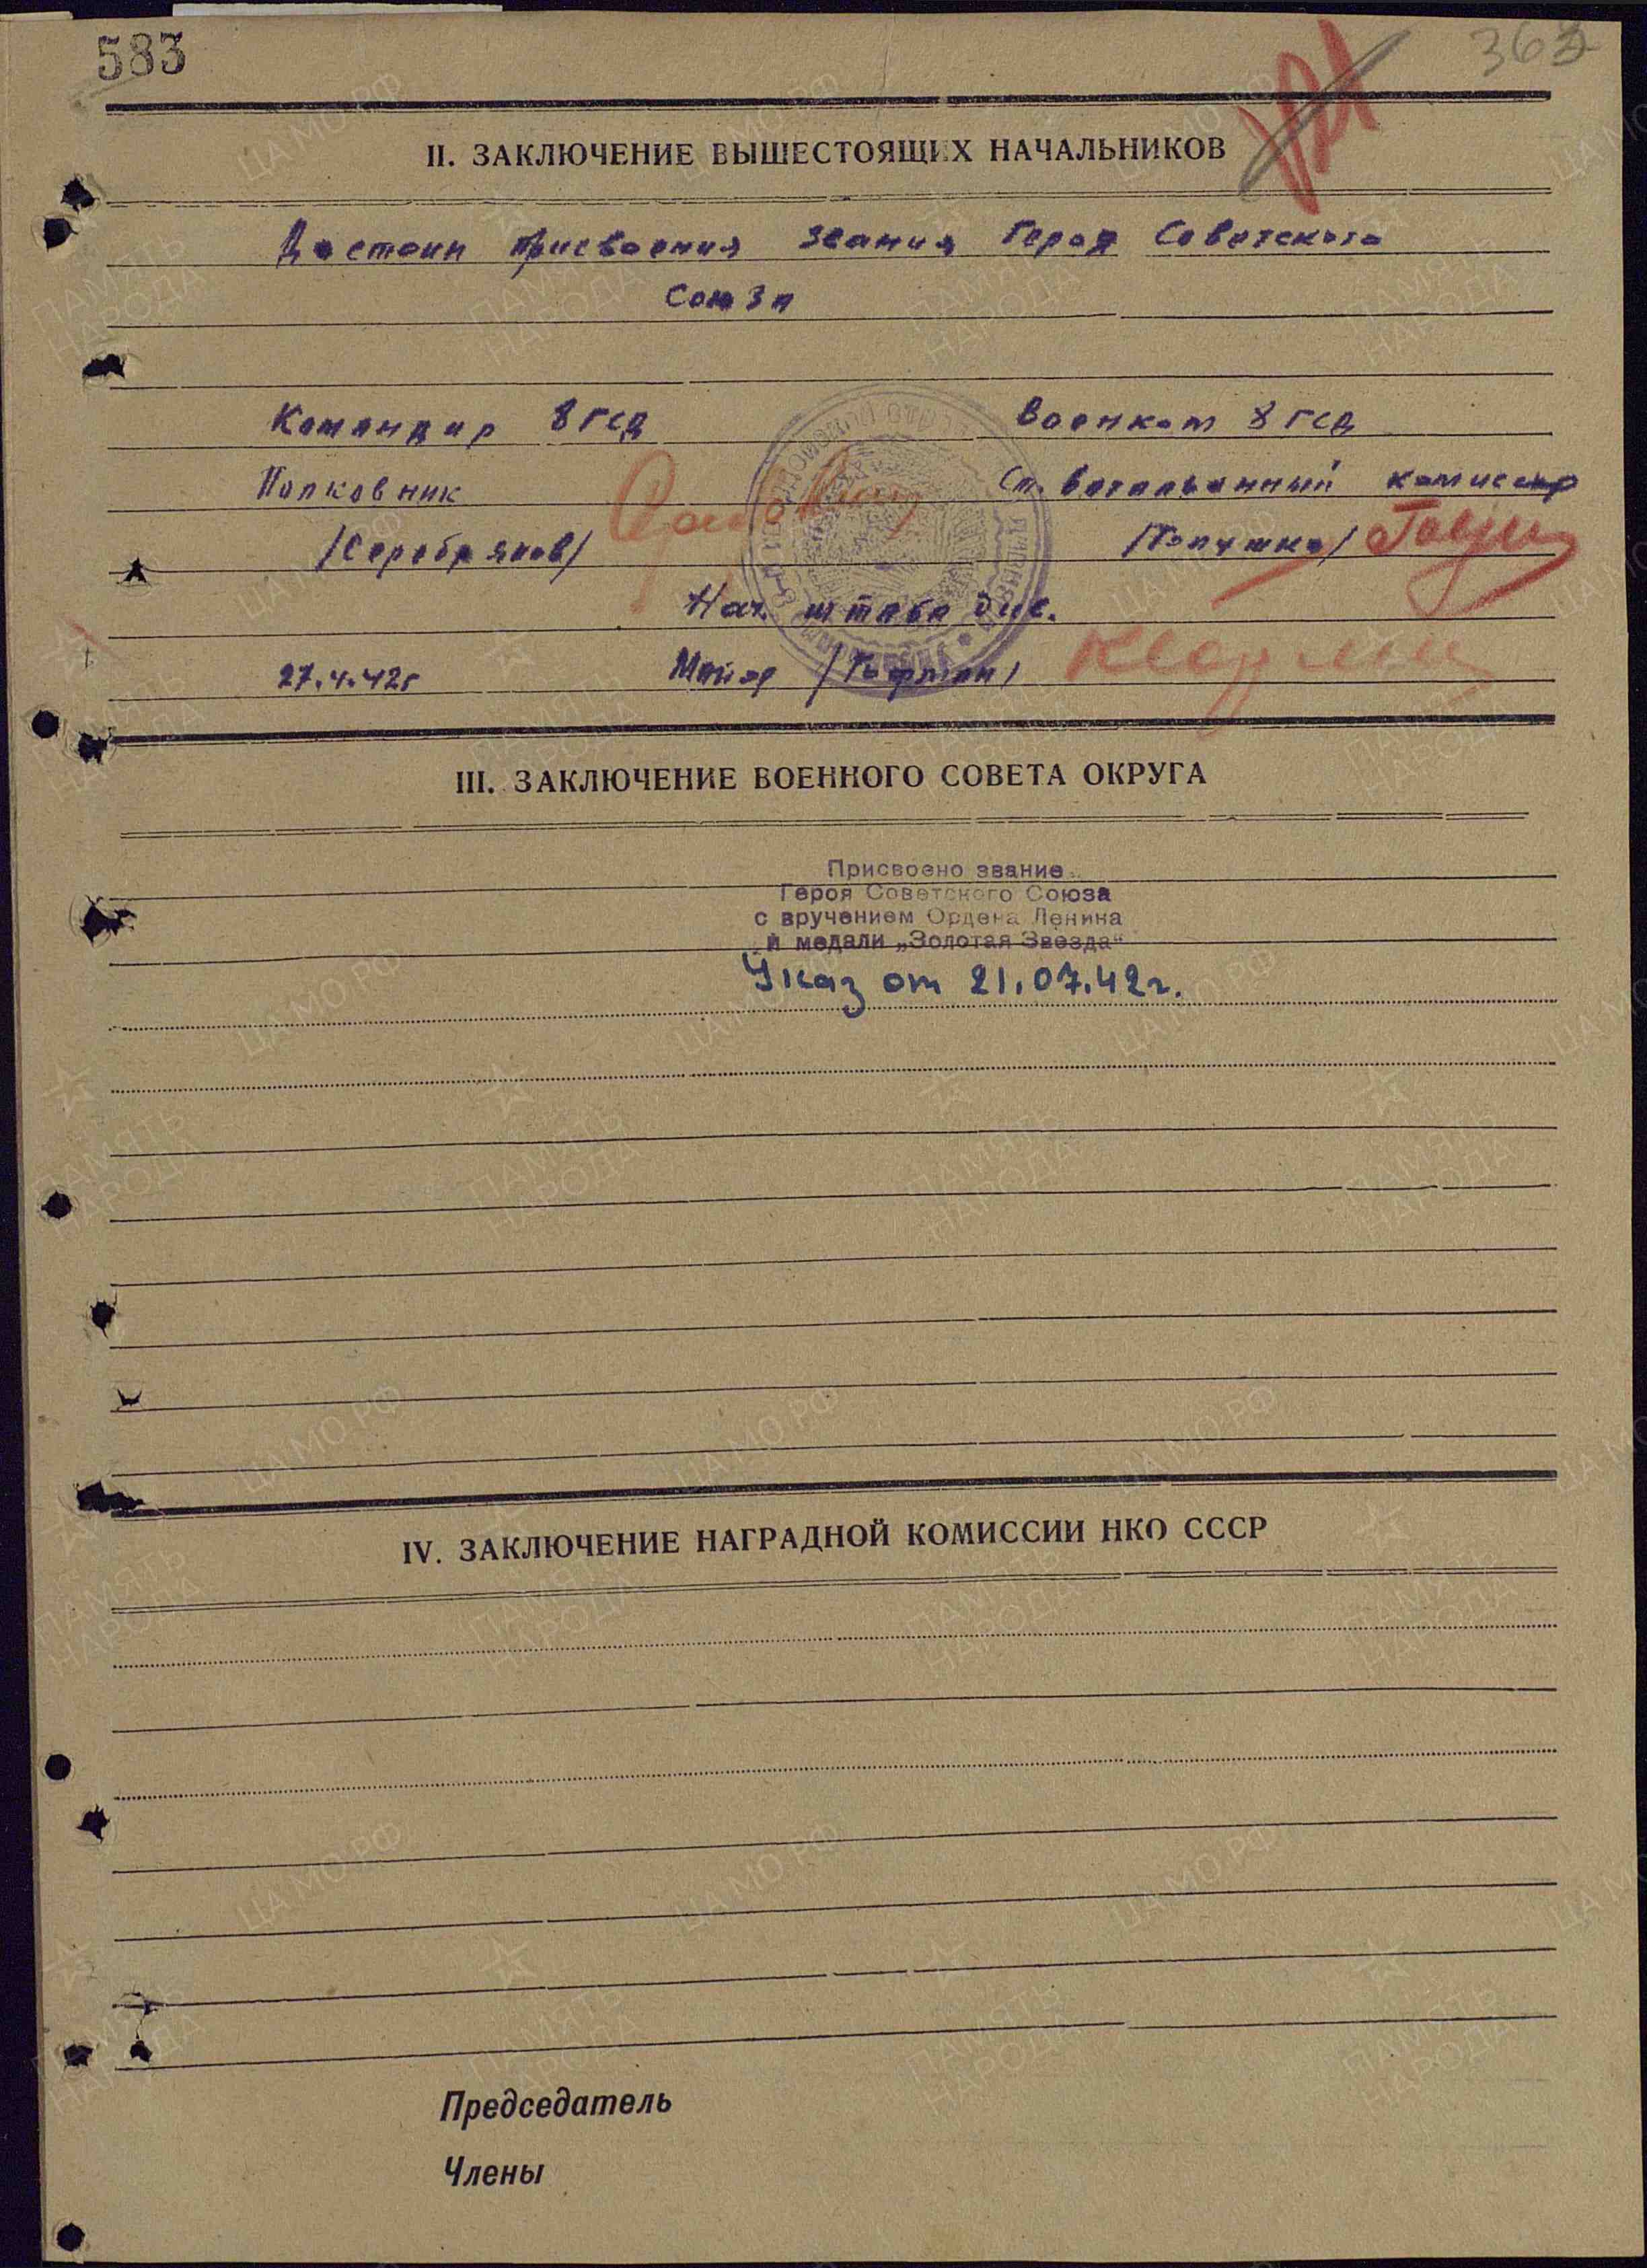 583
363
II. ЗАКЛЮЧЕНИЕ ВЫШЕСТОЯЩИХ НАЧАЛЬНИКОВ
Достоин присвоения звания Героя Советского
Союза
Командир 8 ГСД
Военком 8 ГСД
Полковник
Ст. батальонный комиссар
/Серебряков/
/Голушко/
Нач. штаба див.
27.4.42г
Майор /Гофман/
III. ЗАКЛЮЧЕНИЕ ВОЕННОГО СОВЕТА ОКРУГА
Присвоено звание
Героя Советского Союза
с вручением Ордена Ленина
и медали „Золотая Звезда"
Указ от 21.07.42г.
IV. ЗАКЛЮЧЕНИЕ НАГРАДНОЙ КОМИССИИ НКО СССР
Председатель
Члены
ПАМЯТЬ НАРОДА
ЦАМО.РФ